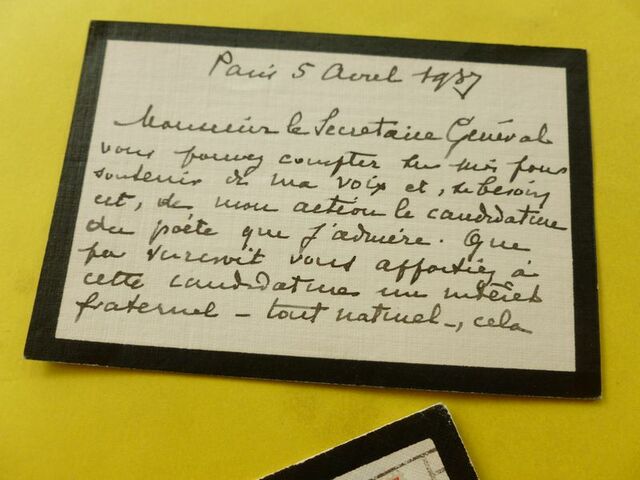 Paris 5 Avril 1937
Monsieur le Secretaire Général
vous pouvez compter sur moi pour
soutenir de ma voix et, si besoin
est, de mon action la candidature
du poéte que j'admire. Que
par vous apportiez à
cette candidature un intérêt
fraternel - tout naturel -, cela